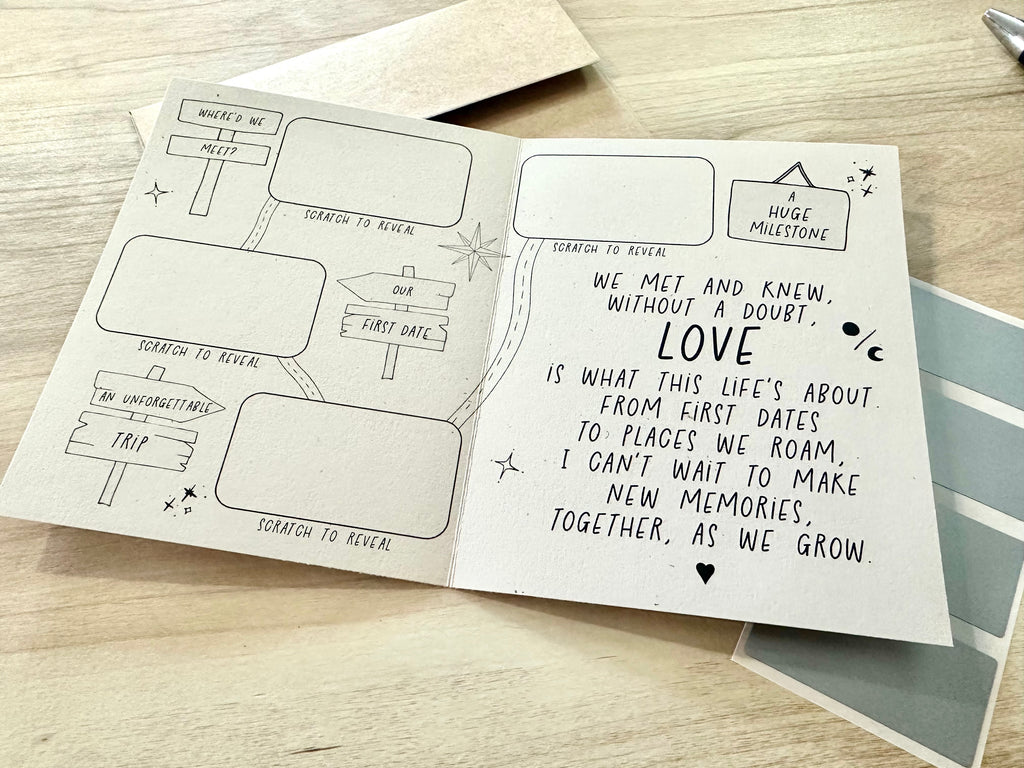 WHERE'D WE
MEET?
SCRATCH TO REVEAL
OUR
FIRST DATE
SCRATCH TO REVEAL
AN UNFORGETTABLE
TRIP
SCRATCH TO REVEAL
SCRATCH TO REVEAL
A
HUGE
MILESTONE
WE MET AND KNEW,
WITHOUT A DOUBT,
LOVE
IS WHAT THIS LIFE'S ABOUT.
FROM FIRST DATES
TO PLACES WE ROAM,
I CAN'T WAIT TO MAKE
NEW MEMORIES,
TOGETHER, AS WE GROW.